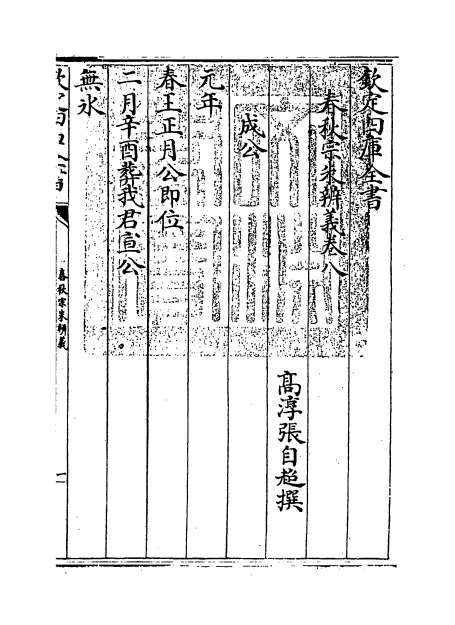 欽定四庫全書
春秋宗朱辨義卷八
高淳張自超撰
成公
元年
春王正月公即位
二月辛酉葬我君宣公
無氷
春秋宗朱辨義
一